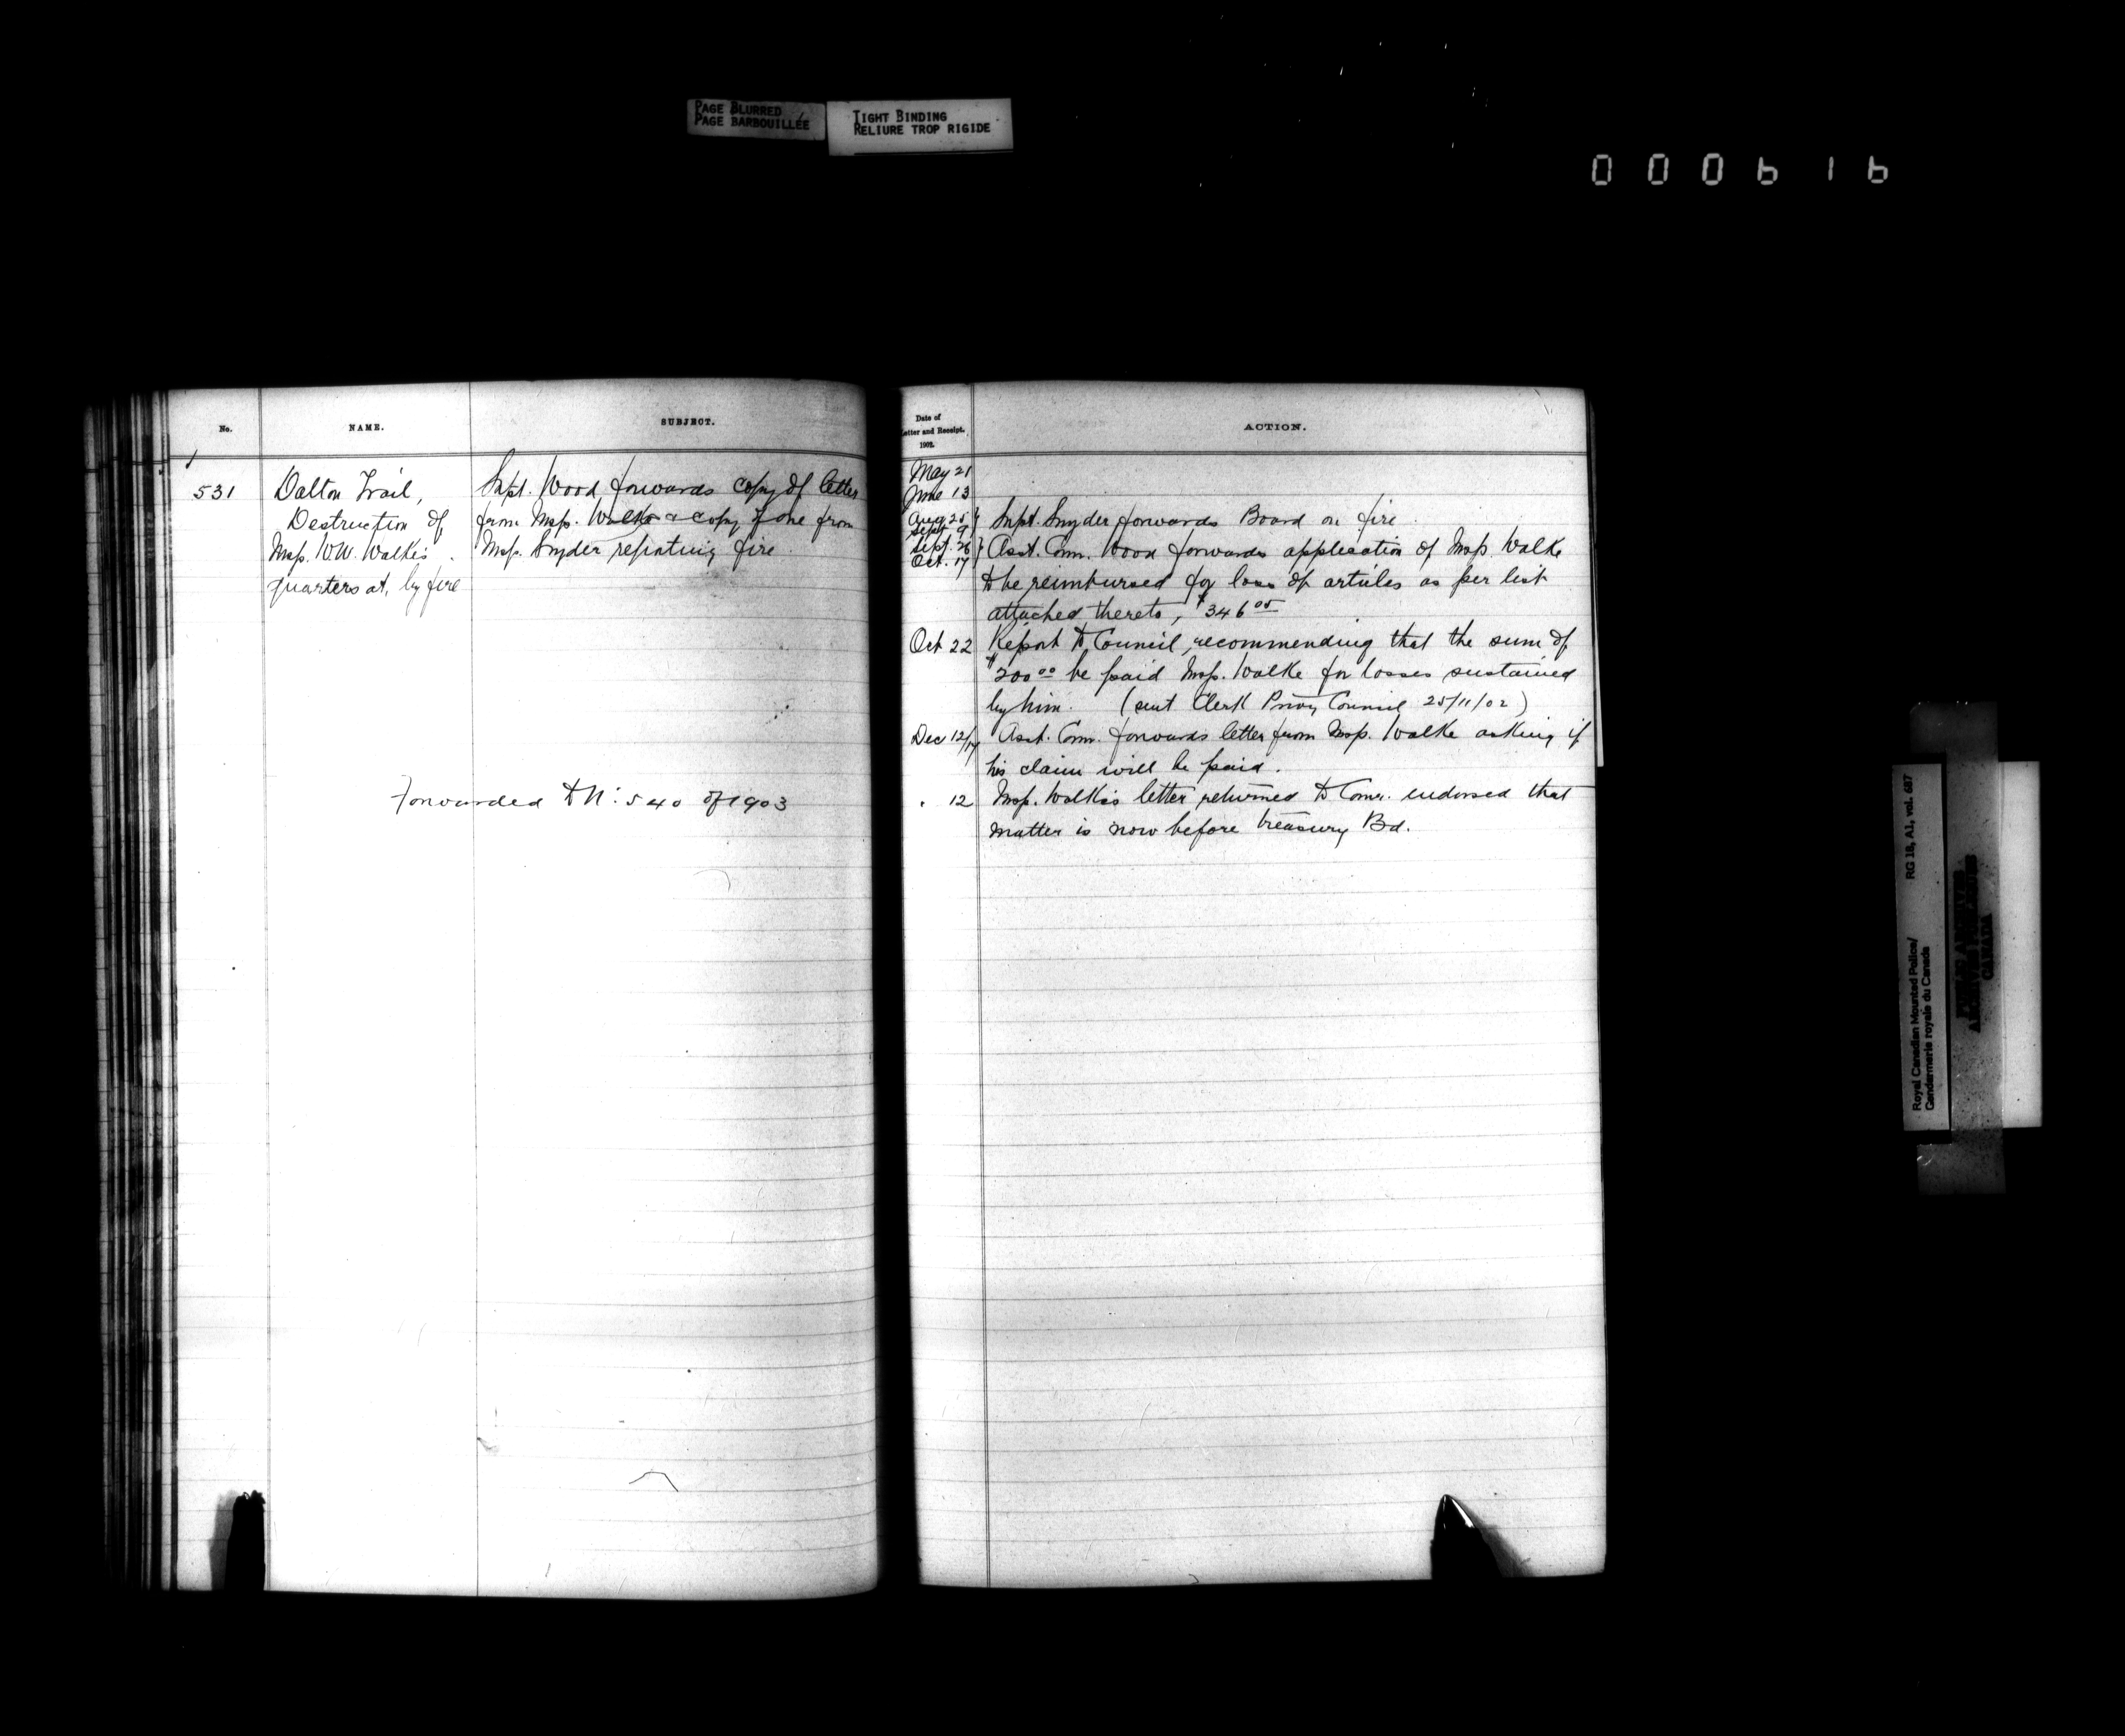 PAGE BLURRED
PAGE BARBOUILLÉE
TIGHT BINDING
RELIURE TROP RIGIDE
000616
No.
NAME.
SUBJECT.
531
Dalton Trail,
Destruction of
Insp. W.W. Walke's
quarters at, by fire
Supt. Wood forwards copy of letter
from Insp. Walke & copy of one from
Insp. Snyder reporting fire.
Forwarded to No. 540 of 1903
Date of
Letter and Receipt.
1902.
ACTION.
May 21
June 13
Aug 25
Sept 9
Supt. Snyder forwards Board on fire.
Sept. 26
Oct. 17
Asst. Com. Wood forwards application of Insp. Walke
to be reimbursed for loss of articles as per list
attached thereto, $346.05
Oct 22
Report to Council, recommending that the sum of
$200.00 be paid Insp. Walke for losses sustained
by him. (sent Clerk Privy Council 25/11/02)
Dec 12/17
Asst. Com. forwards letter from Insp. Walke asking if
his claim will be paid.
" 12
Insp. Walke's letter returned to Comr. endorsed that
matter is now before treasury Bd.
Royal Canadian Mounted Police/
Gendarmerie royale du Canada
RG 18, A1, vol. 687
PUBLIC ARCHIVES
ARCHIVES PUBLIQUES
CANADA